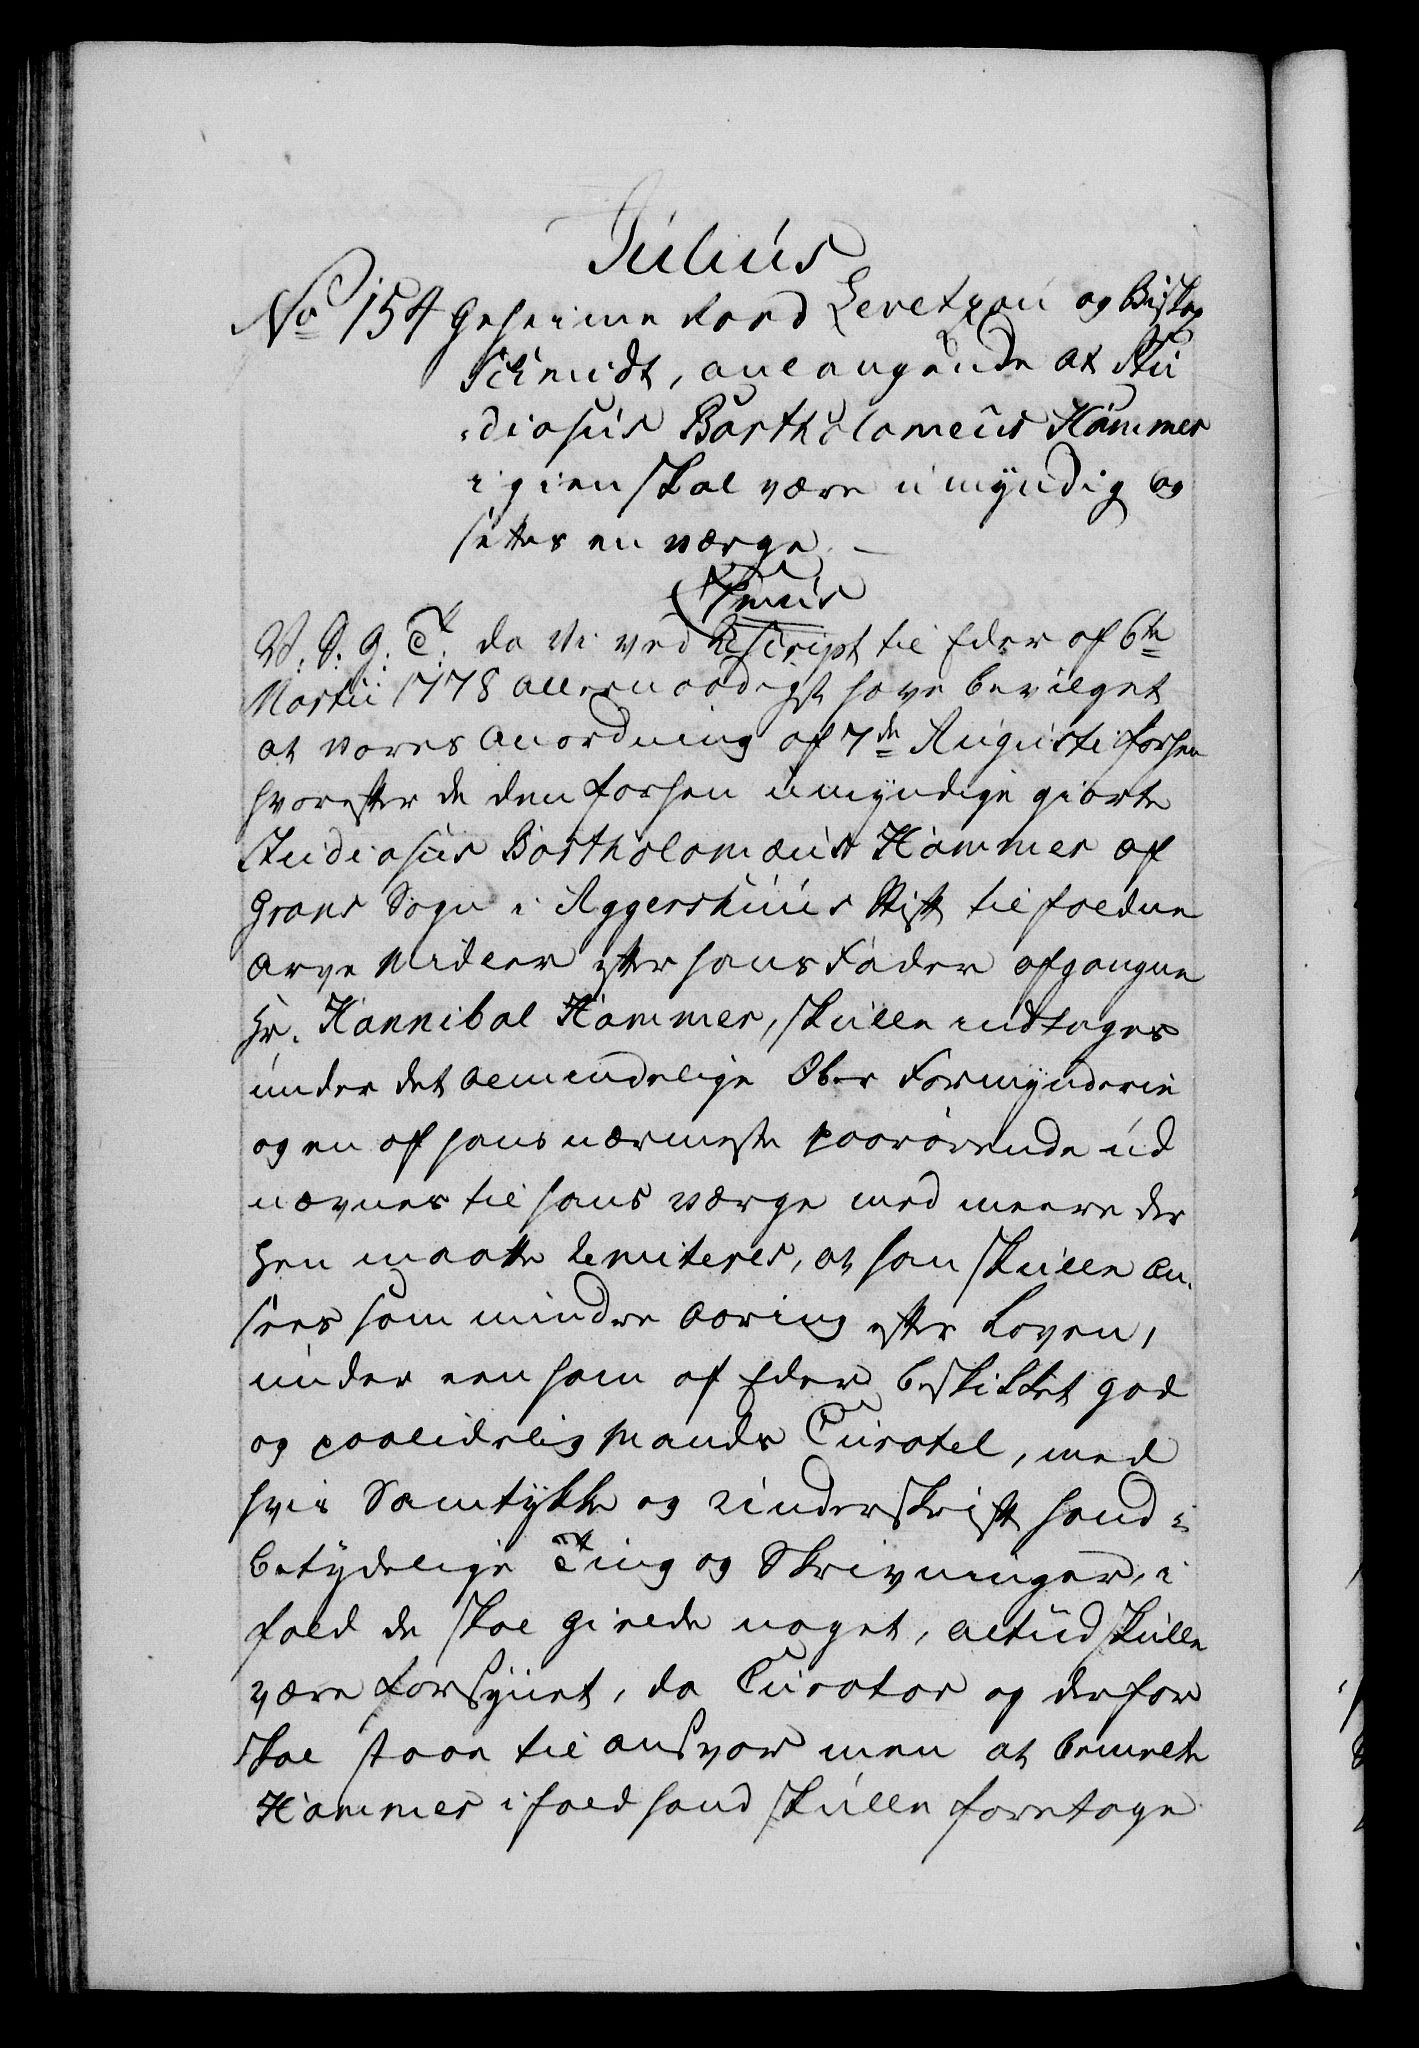 Julius
No 154 Geheime Raad Levetzau og Biskop
Schmidt, anlangende at Stu
diosus Bartholomeus Hammer
igien skal være umyndig og
settes en værge. —
Chr: 7mus
V. S. G. T. da Vi ved Rescript til Eder af 6te
Martii 1778 allernaadigst have bevilget
at vores Anordning af 7de Augusti forhen
hvorefter de den forhen umyndige giorte
Studiosus Bartholomæus Hammer af
Grans Sogn i Aggershuus Stift tilfaldne
Arve Midler efter hans Fader afgangne
Hr. Hannibal Hammer, skulle indtages
under det almindelige Ober Formynderie
og en af hans nærmeste paarørende ud
nævnes til hans værge med meere der
hen maatte limiteres, at han skulle an-
sees som mindre Aaring efter Loven,
under een ham af Eder beskikket god
og paalidelig Mands Curatel, med
hvis Samtykke og Underskrift hand i
betydelige Ting og Skrivninger, i
fald de skal gielde noget, altiid skulle
være forsynet, da Curator og derfor
skal staae til ansvar men at bemelte
Hammer ifald hand skulle foretage